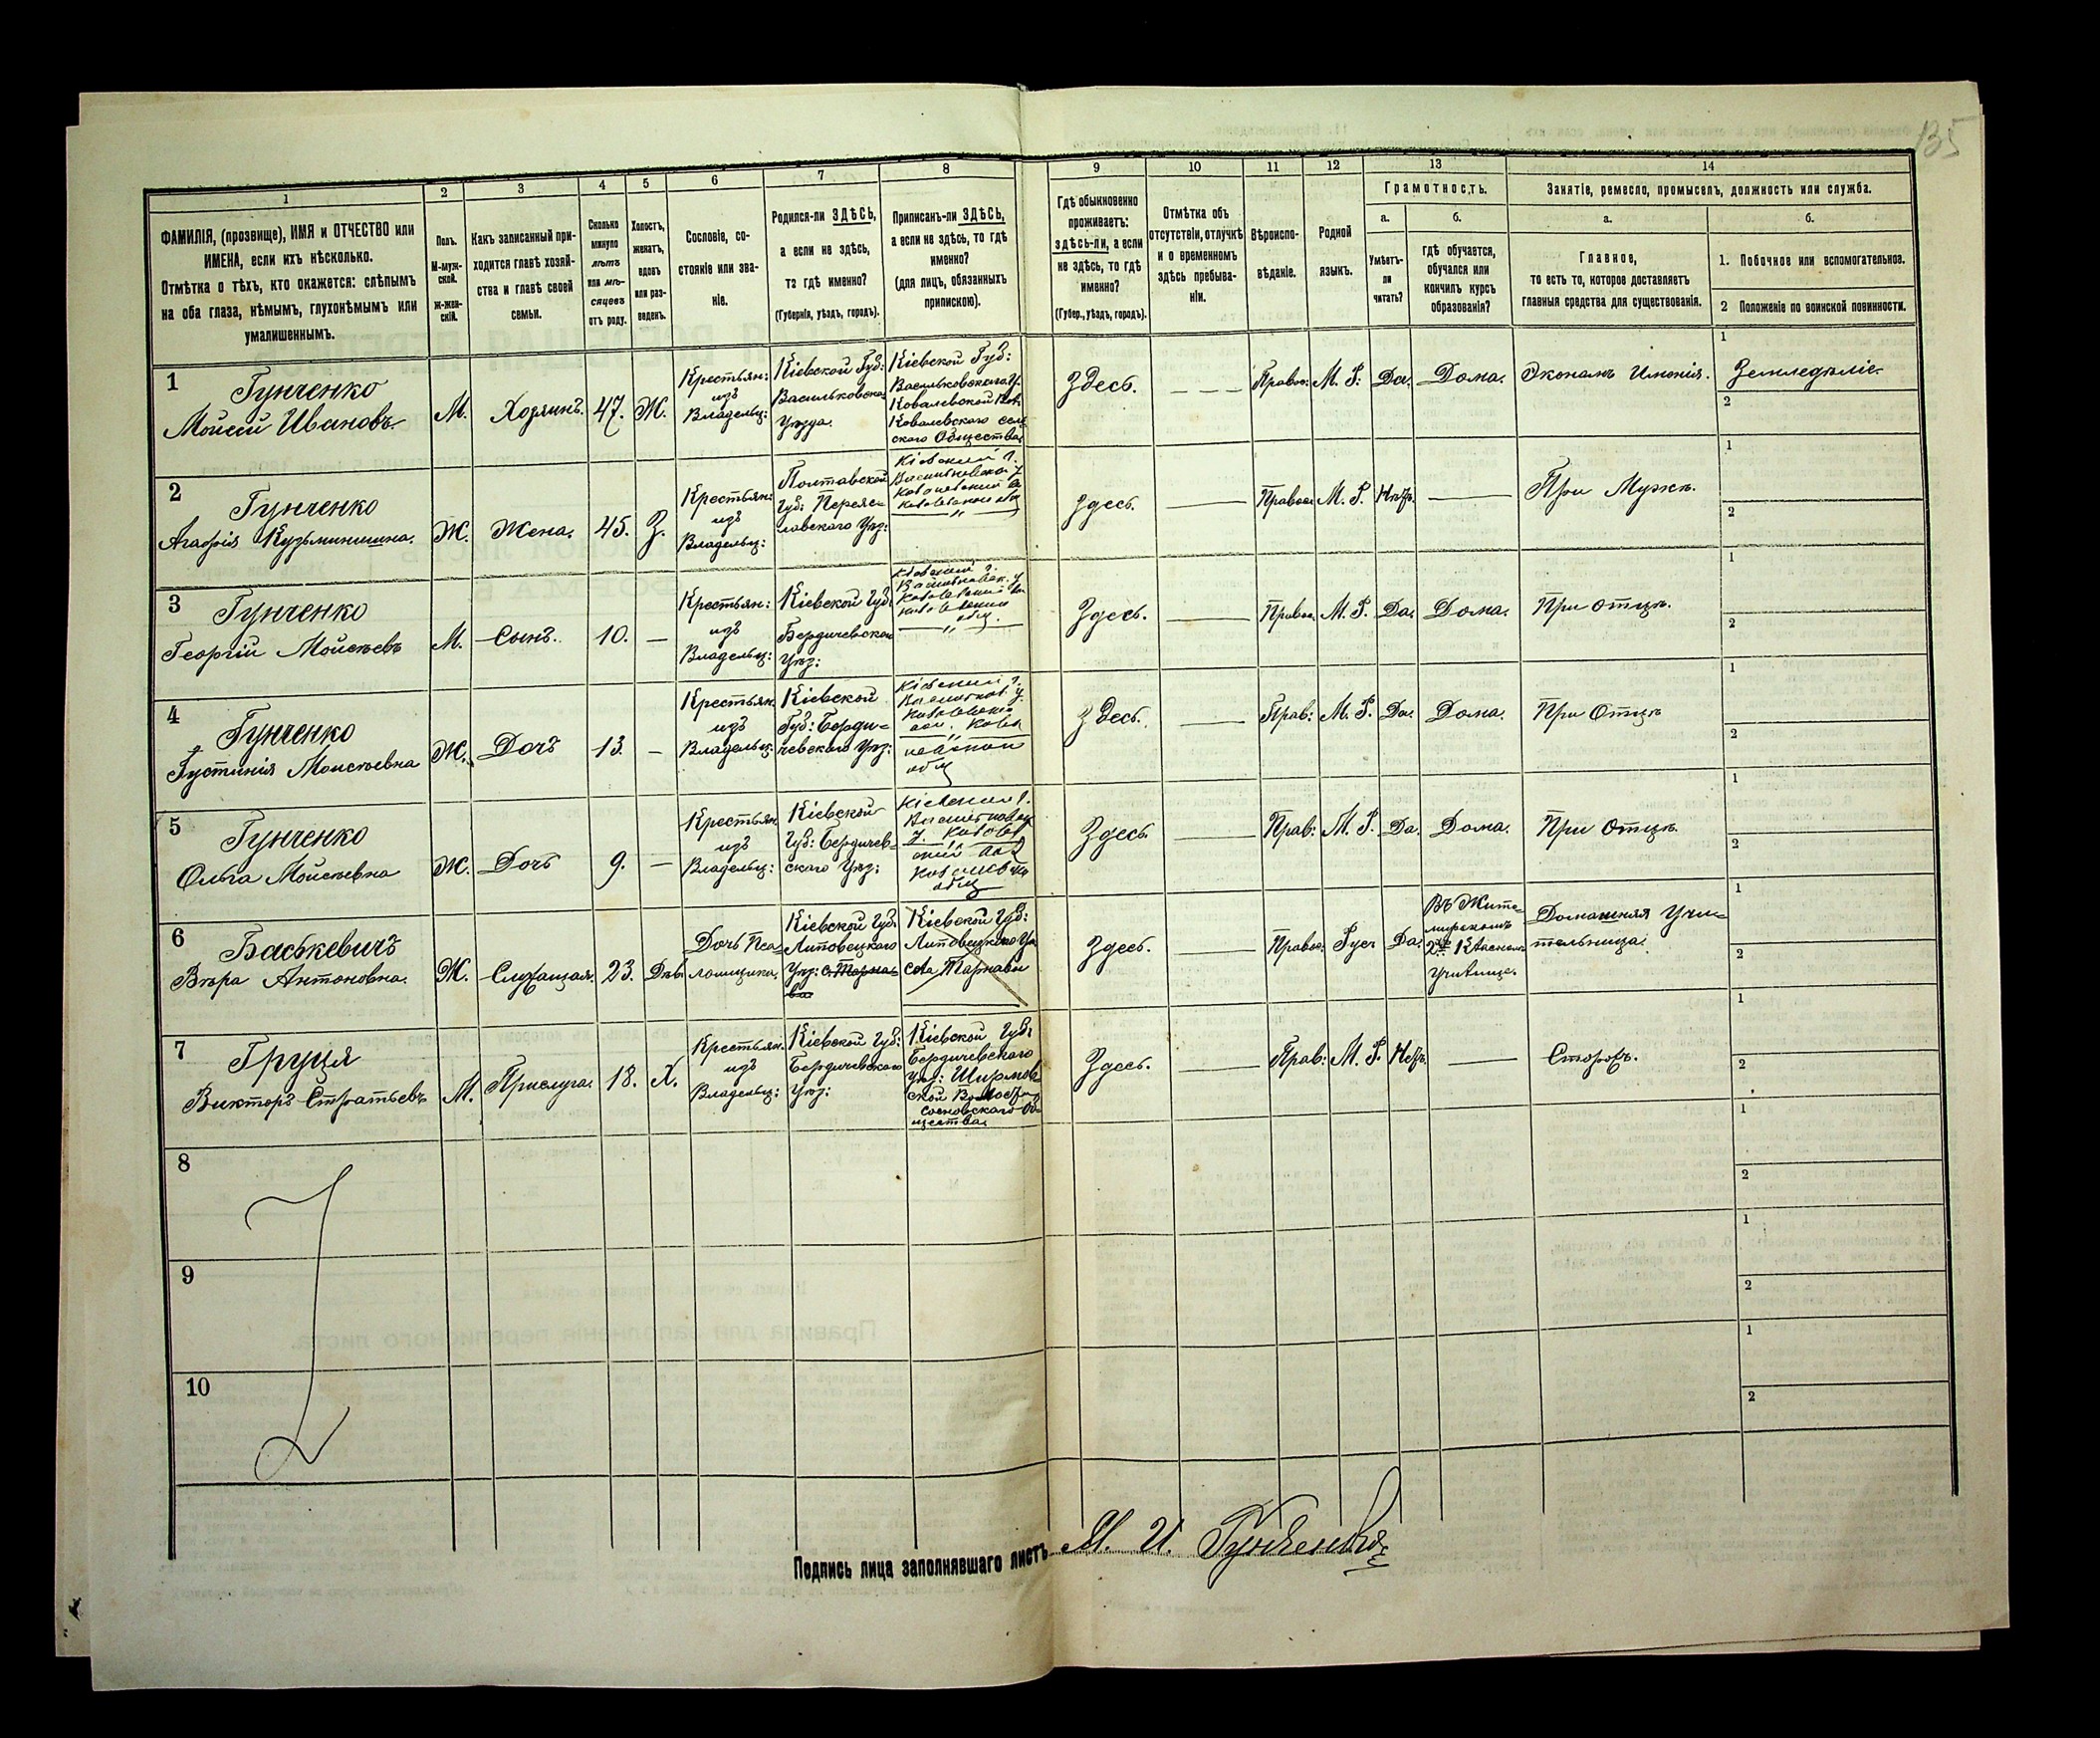 135
1 2 3 4 5 6 7 8 9 10 11 12 13 14
ФАМИЛІЯ, (прозвище), ИМЯ и ОТЧЕСТВО или
ИМЕНА, если ихъ нѣсколько.
Отмѣтка о тѣхъ, кто окажется: слѣпымъ
на оба глаза, нѣмымъ, глухонѣмымъ или
умалишеннымъ.
Полъ.
М-муж-
ской.
ж-жен-
скій.
Какъ записанный при-
ходится главѣ хозяй-
ства и главѣ своей
семьи.
Сколько
минуло
лѣтъ
или мѣ-
сяцевъ
отъ роду.
Холостъ,
женатъ,
вдовъ
или раз-
веденъ.
Сословіе, со-
стояніе или зва-
ніе.
Родился-ли ЗДѢСЬ,
а если не здѣсь,
то гдѣ именно?
(Губернія, уѣздъ, городъ).
Приписанъ-ли ЗДѢСЬ,
а если не здѣсь, то гдѣ
именно?
(для лицъ, обязанныхъ
припискою).
Гдѣ обыкновенно
проживаетъ:
здѣсь-ли, а если
не здѣсь, то гдѣ
именно?
(Губер., уѣздъ, городъ).
Отмѣтка объ
отсутствіи, отлучкѣ
и о временномъ
здѣсь пребыва-
ніи.
Вѣроиспо-
вѣданіе.
Родной
языкъ.
Грамотность.
а.
Умѣетъ-
ли
читать?
б.
гдѣ обучается,
обучался или
кончилъ курсъ
образованія?
Занятіе, ремесло, промыселъ, должность или служба.
а.
Главное,
то есть то, которое доставляетъ
главныя средства для существованія.
б.
1. Побочное или вспомогательное.
2 Положеніе по воинской повинности.
1
Гунченко
Мойсей Ивановъ.
М.
Хозяинъ.
47.
Ж.
Крестьян:
изъ
Владельц:
Кіевской Губ:
Васильковска
Уѣзда.
Кіевской Губ:
Васильковскаго У.
Ковалевской Вол.
Ковалевского сель
ского Общества
Здесь.
— — —
Правос.
М. Р.
Да.
Дома.
Экономъ Имѣнія.
1
Земледѣліе.
2
2
Гунченко
Агафія Кузьминишна.
Ж.
Жена.
45.
З.
Крестьян:
изъ
Владельц:
Полтавской
Губ: Переяс-
лавскаго Уѣз:
Кіевской г.
Здесь.
—
Правос.
М. Р.
Нѣтъ.
—
При Мужѣ.
1
2
3
Гунченко
Георгій Мойсѣевъ
М.
Сынъ.
10.
—
Крестьян:
изъ
Владельц:
Кіевской Губ.
Бердичевской
Уѣз:
Кіевской г.
Здесь.
—
Правос.
М. Р.
Да.
Дома.
При отцѣ.
1
2
4
Гунченко
Іустинія Моисѣевна
Ж.
Дочъ
13.
—
Крестьян.
изъ
Владельц:
Кіевской
Губ: Берди-
чевскаго Уѣз:
Кіевской г.
Здесь.
—
Прав:
М. Р.
Да.
Дома.
При Отцѣ
1
2
5
Гунченко
Ольга Мойсѣевна
Ж.
Дочъ
9.
—
Крестьян
изъ
Владельц:
Кіевской
Губ: Бердичев-
ского Уѣз:
Кіевской г.
Здесь
—
Прав:
М. Р.
Да.
Дома.
При Отцѣ.
1
2
6
Баськевичъ
Вѣра Антоновна.
Ж.
Служащая.
23.
Дѣв.
Дочъ Пса-
ломщика.
Кіевской Губ:
Липовецкаго
Уѣз: с. Тарна-
ва
Кіевской Губ:
Липовецкаго Уѣ
села Тарнавы
Здесь.
—
Правос.
Рус
Да.
Въ Жито-
мирскомъ
2хъ Класном
Училище.
Домашняя Учи-
тельница.
1
2
7
Груця
Викторъ Стратьевъ
М.
Прислуга.
18.
Х.
Крестьян.
изъ
Владельц:
Кіевской Губ:
Бердичевскаго
Уѣз:
Кіевской Губ:
Бердичевскаго
Уѣз: Ширмов-
ской Волости
Сосновскаго Об-
щества.
Здесь.
—
Прав:
М. Р.
Нѣтъ.
—
Сторожъ.
1
2
8
1
2
9
1
2
10
1
2
Подпись лица заполнявшаго листъ М. И. Гунченко